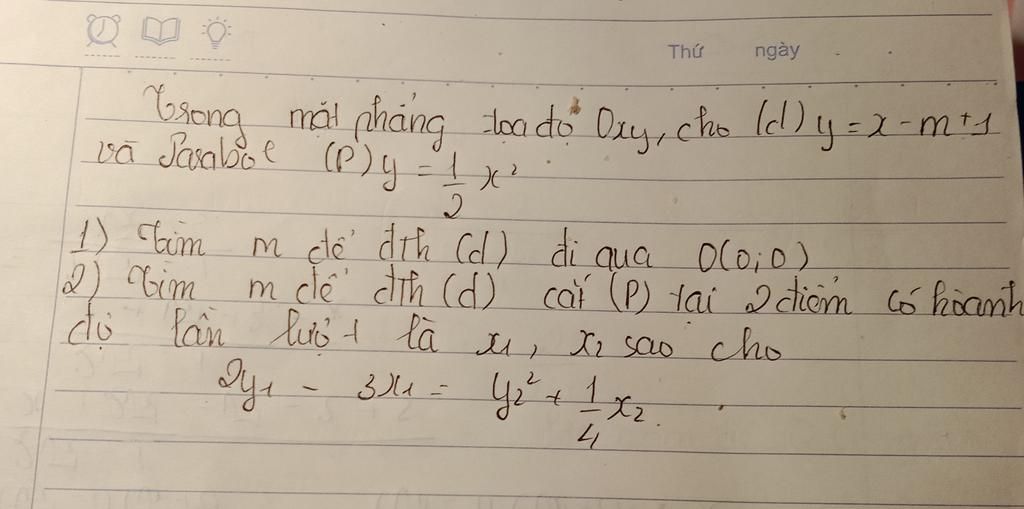 Thứ ngày
Trong mặt phẳng tọa độ Oxy, cho (d) y = x - m + 1
và Parabol (P) y = \frac{1}{2} x²
1) Tìm m để đth (d) đi qua O(0;0)
2) Tìm m để đth (d) cắt (P) tại 2 điểm có hoành
độ lần lượt là x₁, x₂ sao cho
2y₁ - 3x₁ = y₂² + \frac{1}{4} x₂.